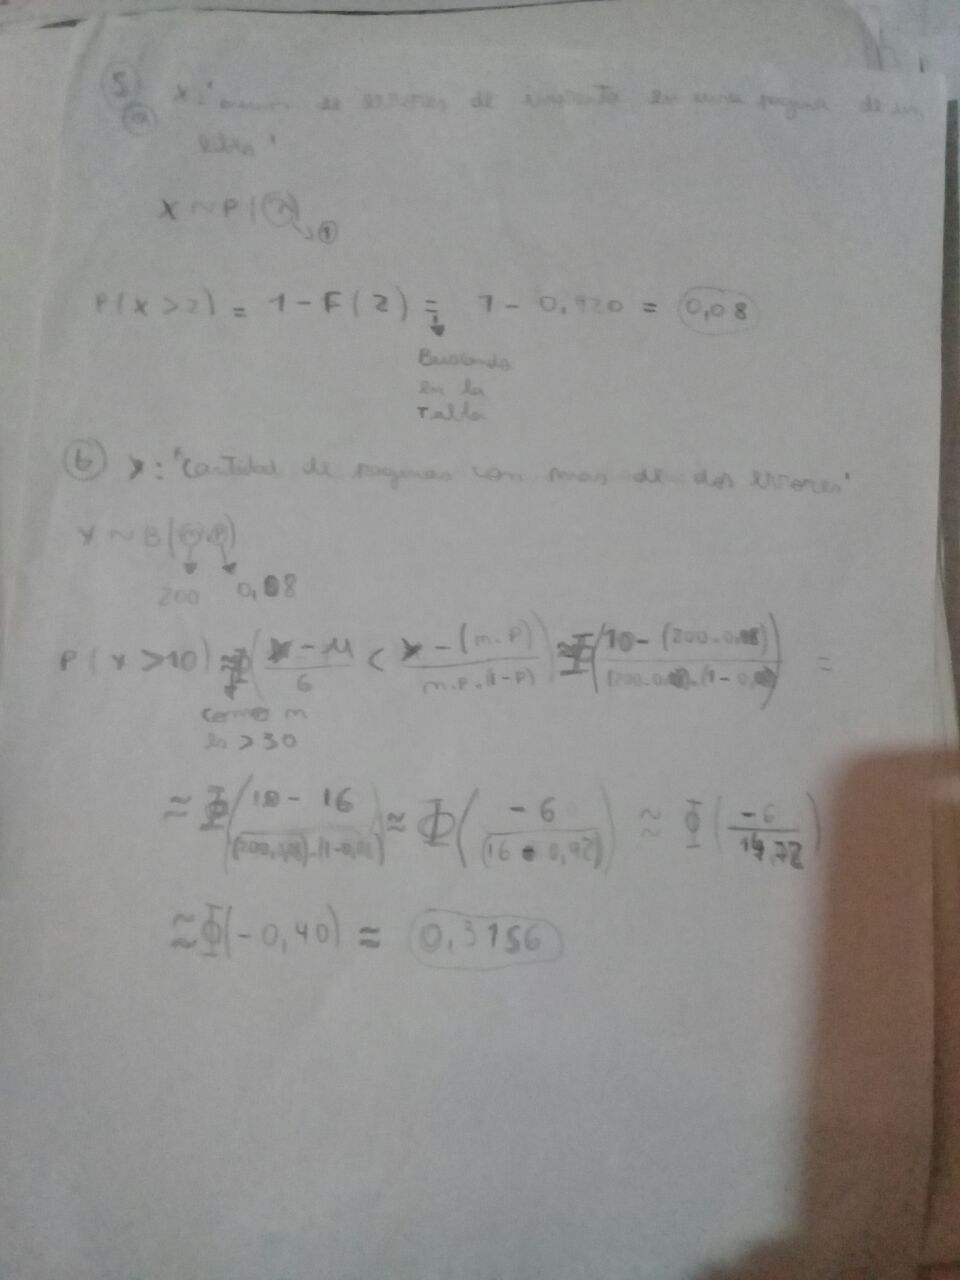 5
a x: " de errores de imprenta en una pagina de un
libro"
X ~ P(λ)
→ 1
P(X > 2) = 1 - F(2) = 1 - 0,920 = 0,08
Buscando
en la
Tabla
b Y: "Cantidad de paginas con mas de dos errores"
Y ~ B(n, p)
200 0,08
P(Y > 10) ≈ Φ(Y - μ / σ < Y - (n.p) / n.p.(1-p)) ≈ Φ(10 - (200.0.08) / (200.0.08).(1 - 0,08)) =
como n
es > 30
≈ Φ(10 - 16 / (200.0.08).(1-0,08)) ≈ Φ(-6 / (16 . 0,92)) ≈ Φ(-6 / 14,72)
≈ Φ(-0,40) ≈ 0,3156